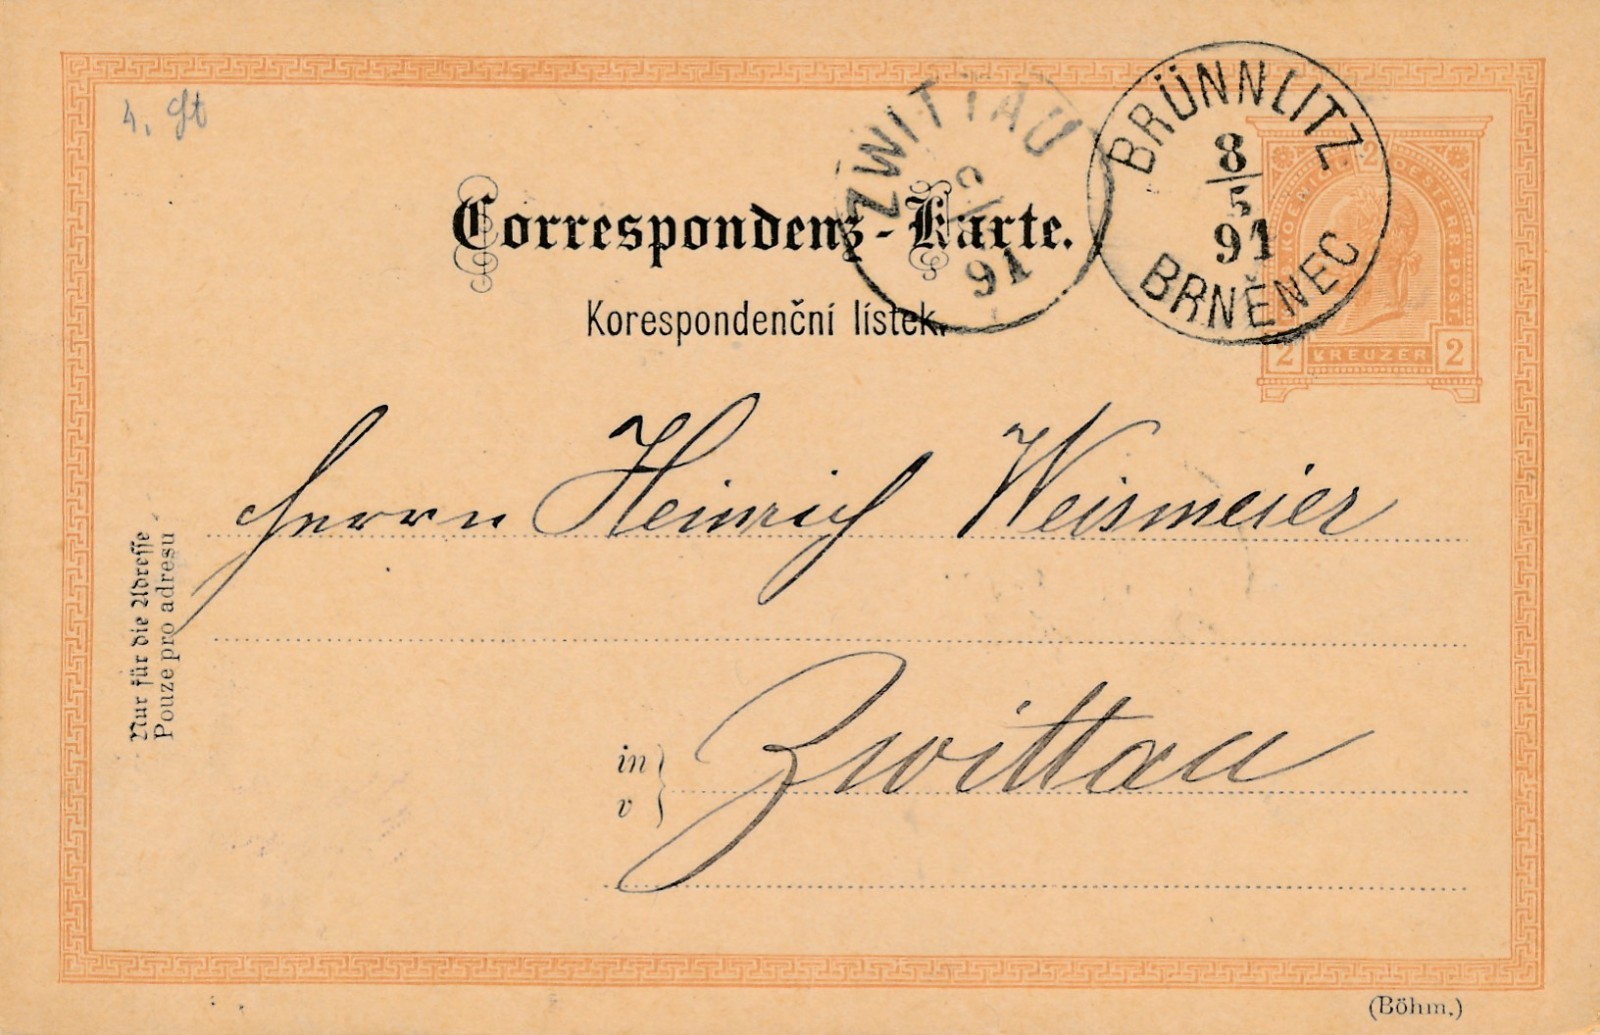 4. St
ZWITTAU
91
BRÜNNLITZ
8/5
91
BRNĚNEC
KOENIGL. OESTERR. POST.
2 KREUZER 2
Correspondenz-Karte.
Korespondenční lístek.
Herrn Heinrich Weismeier
Nur für die Adresse
Pouze pro adresu
in
v
Zwittau
(Böhm.)